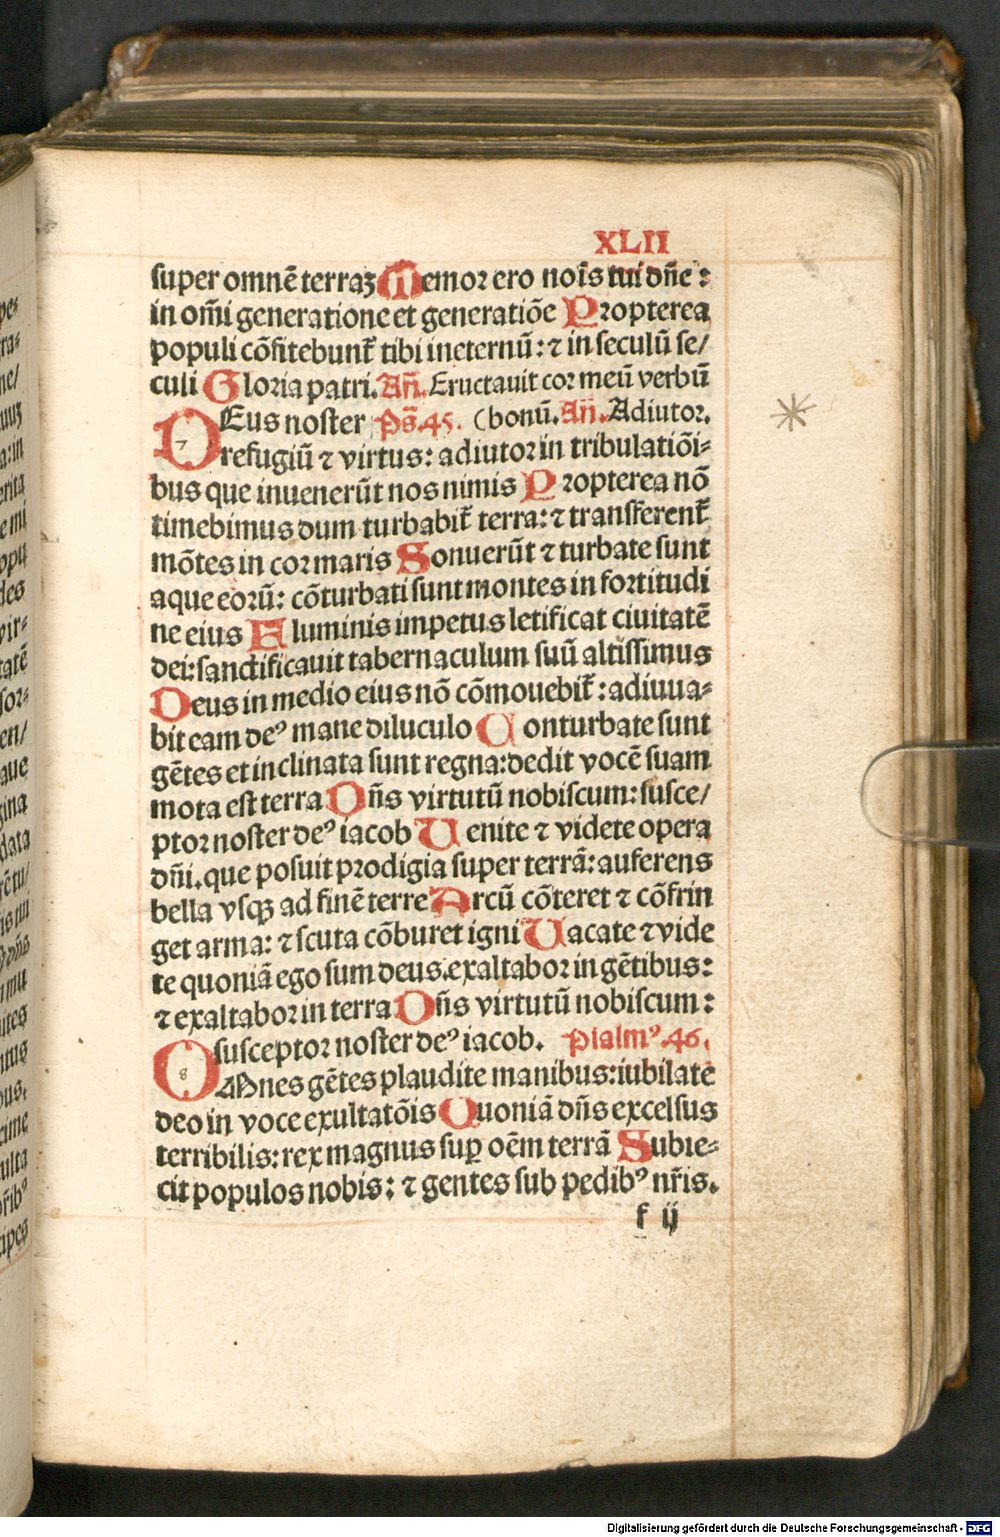 XLII
super omnē terraʒ Memor ero noīs tui dn̄e :
in om̄i generatione et generatiōe Propterea
populi cōfitebunt̄ tibi ineternū: ⁊ in seculū se/
culi Gloria patri. An̄. Eructauit cor meū verbū
DEus noster Ps̄.45. (bonū. An̄. Adiutor.
refugiū ⁊ virtus: adiutor in tribulatiōi⸗
bus que inuenerūt nos nimis Propterea nō
timebimus dum turbabit̄ terra: ⁊ transferent̄
mōtes in cor maris Sonuerūt ⁊ turbate sunt
aque eorū: cōturbati sunt montes in fortitudi
ne eius Fluminis impetus letificat ciuitatē
dei: sanctificauit tabernaculum suū altissimus
Deus in medio eius nō cōmouebit̄: adiuua⸗
bit eam deꝰ mane diluculo Conturbate sunt
gētes et inclinata sunt regna: dedit vocē suam
mota est terra Dn̄s virtutū nobiscum: susce/
ptor noster deꝰ iacob Uenite ⁊ videte opera
dn̄i. que posuit prodigia super terrā: auferens
bella vsqꝫ ad finē terre Arcū cōteret ⁊ cōfrin
get arma: ⁊ scuta cōburet igni Uacate ⁊ vide
te quoniā ego sum deus. exaltabor in gētibus:
⁊ exaltabor in terra Dn̄s virtutū nobiscum:
susceptor noster deꝰ iacob. Psalmꝰ.46.
OMnes gētes plaudite manibus: iubilate
deo in voce exultatōis Quoniā dn̄s excelsus
terribilis: rex magnus suꝑ oēm terrā Subie⸗
cit populos nobis: ⁊ gentes sub pedibꝰ nr̄is.
f ij
Digitalisierung gefördert durch die Deutsche Forschungsgemeinschaft - DFG